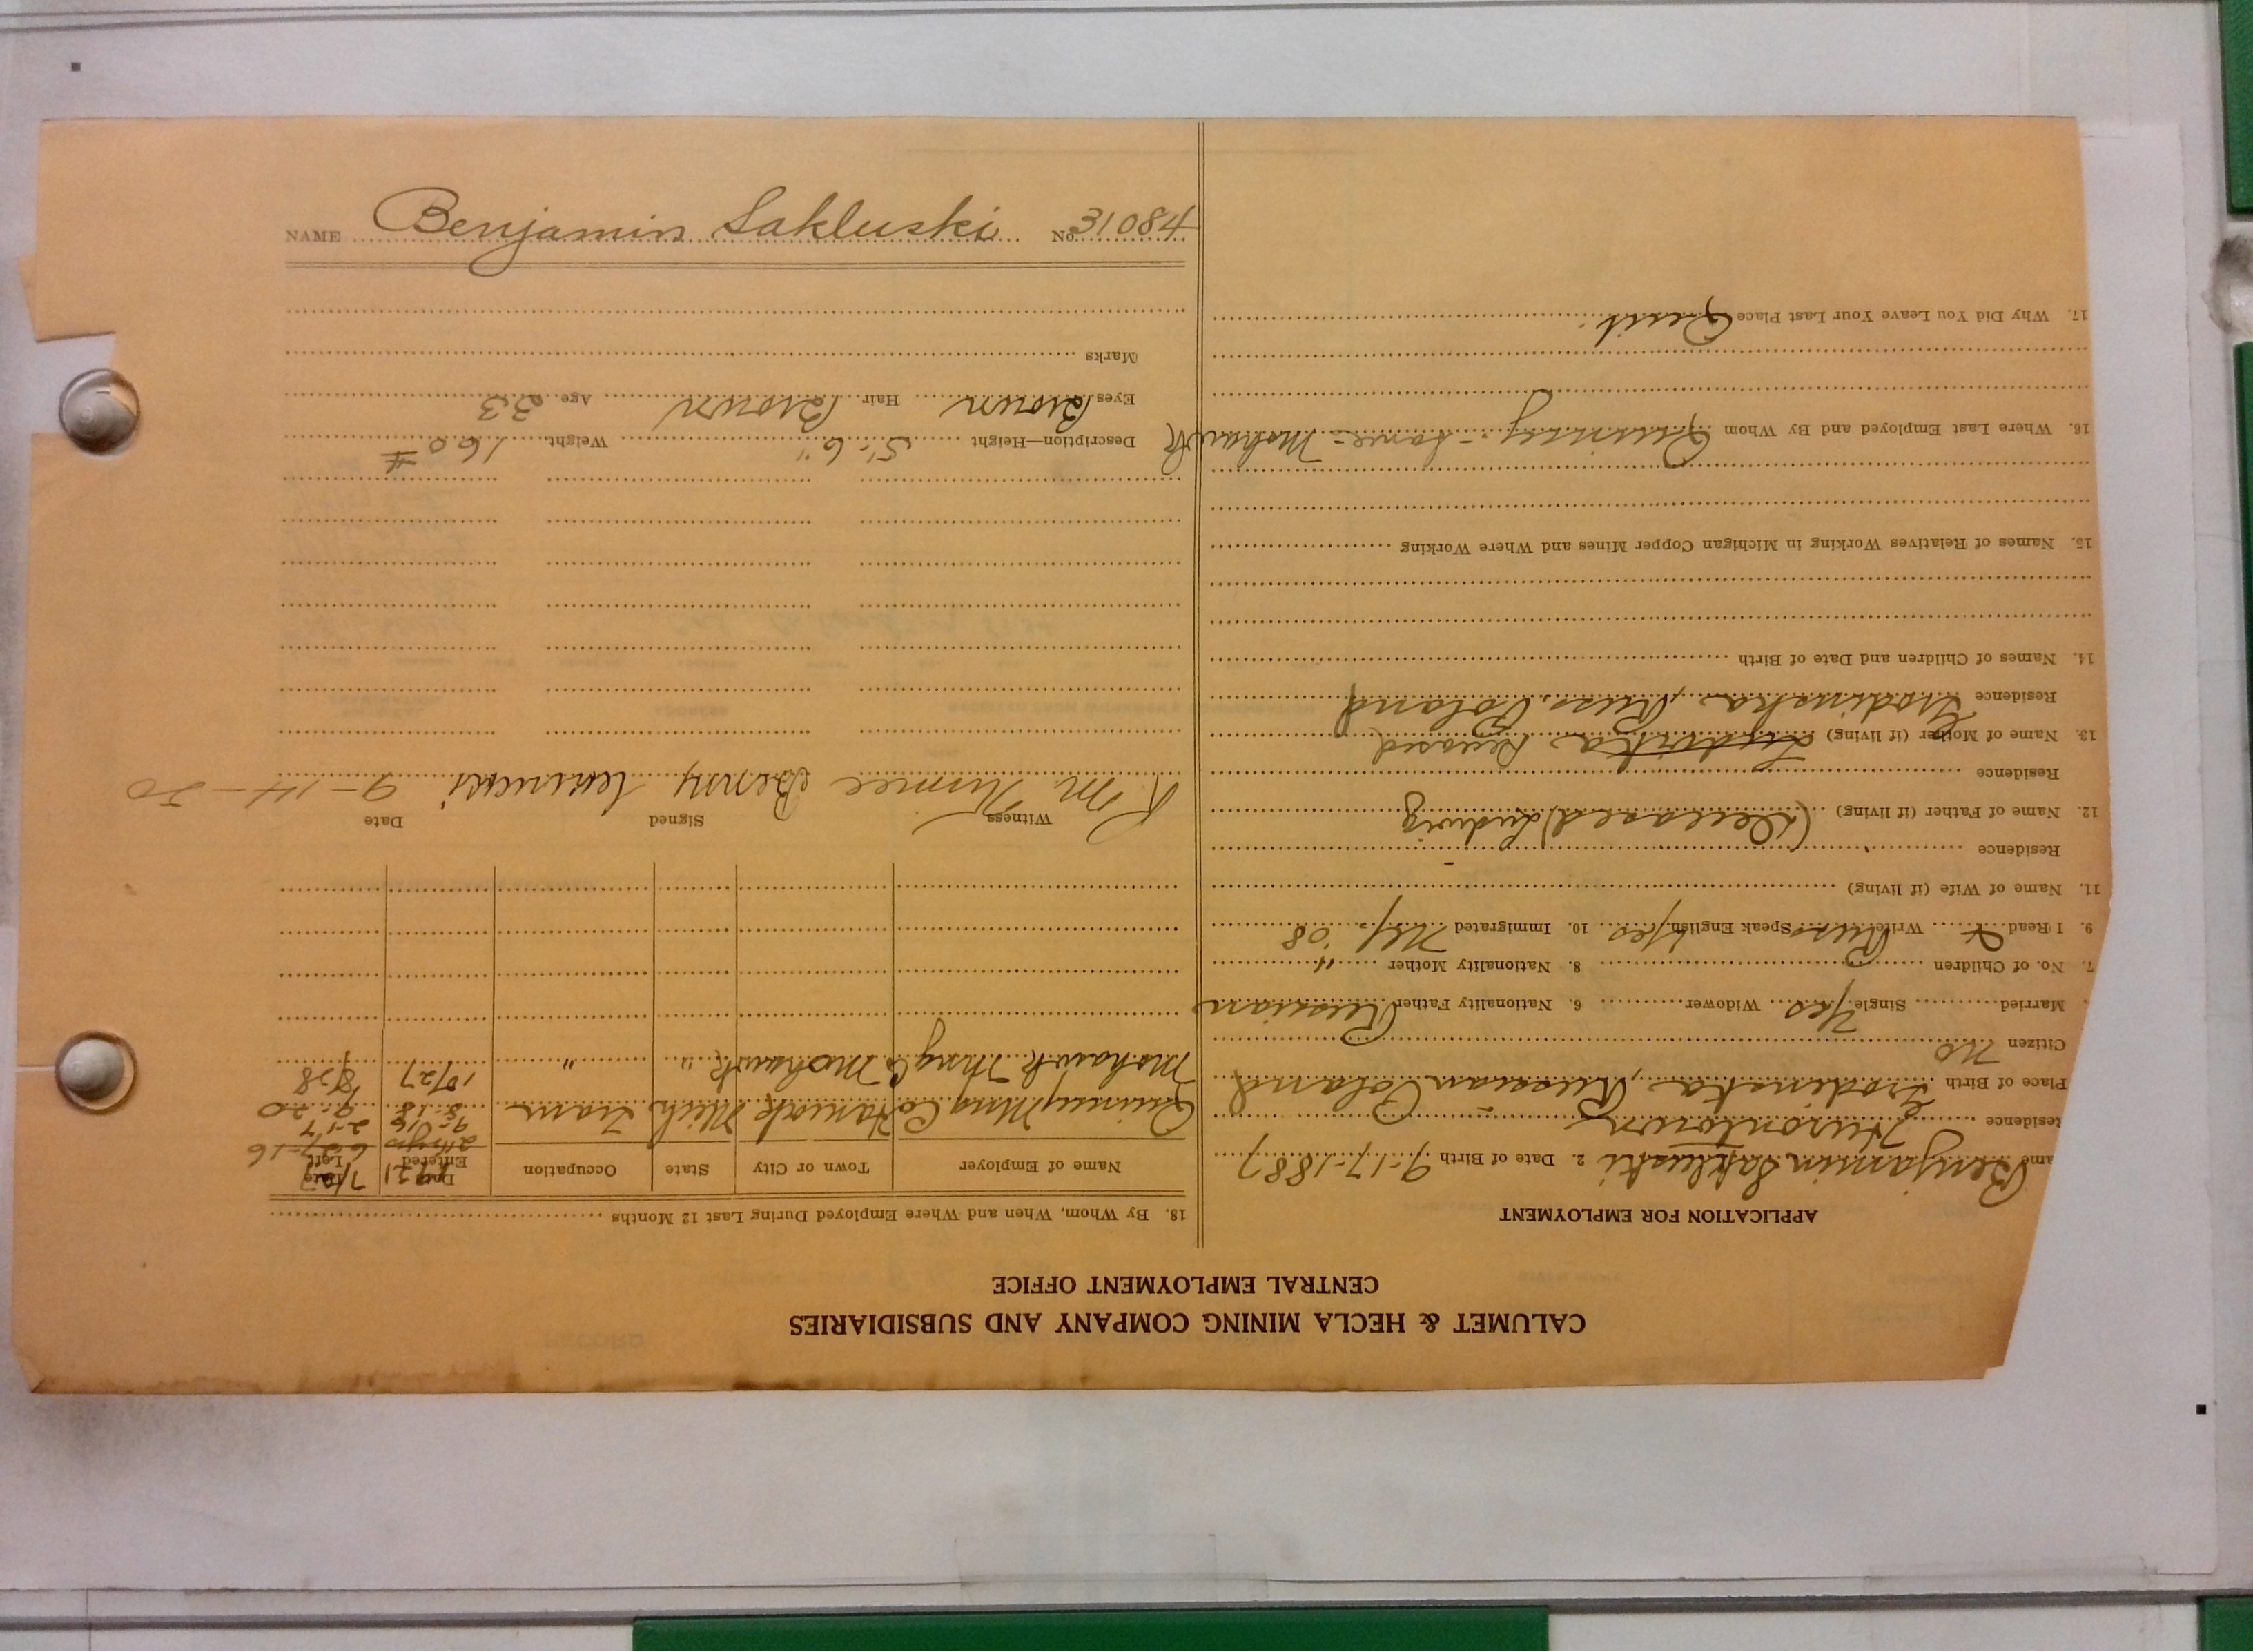 CALUMET & HECLA MINING COMPANY AND SUBSIDIARIES
CENTRAL EMPLOYMENT OFFICE
APPLICATION FOR EMPLOYMENT
ame Benjamin Sakluski 2. Date of Birth 9-17-1887
Residence Hurontown
Place of Birth Grodinska, Russian Poland
Citizen no
Married Single Yes Widower 6. Nationality Father Russian
7. No. of Children 8. Nationality Mother "
9. I Read Write Russ Speak English Yes 10. Immigrated '08
11. Name of Wife (if living)
Residence
12. Name of Father (if living) (Deceased) Ludwig
Residence
13. Name of Mother (if living)
Residence Grodinska, Russ. Poland
14. Names of Children and Date of Birth
15. Names of Relatives Working in Michigan Copper Mines and Where Working
16. Where Last Employed and By Whom Quincy - same - Mohawk
17. Why Did You Leave Your Last Place Quit.
18. By Whom, When and Where Employed During Last 12 Months
Name of Employer Town or City State Occupation Date Entered Date Left
Quincy Mng Co Hancock Mich Tram 5-18 9-20
Mohawk Mng Co Mohawk " " 10/27 8/28
Witness Signed Date
R. M. Benny 9-14-20
Description—Height 5'.6" Weight 160 #
Eyes Brown Hair Brown Age 33
Marks
NAME Benjamin Sakluski No. 31084